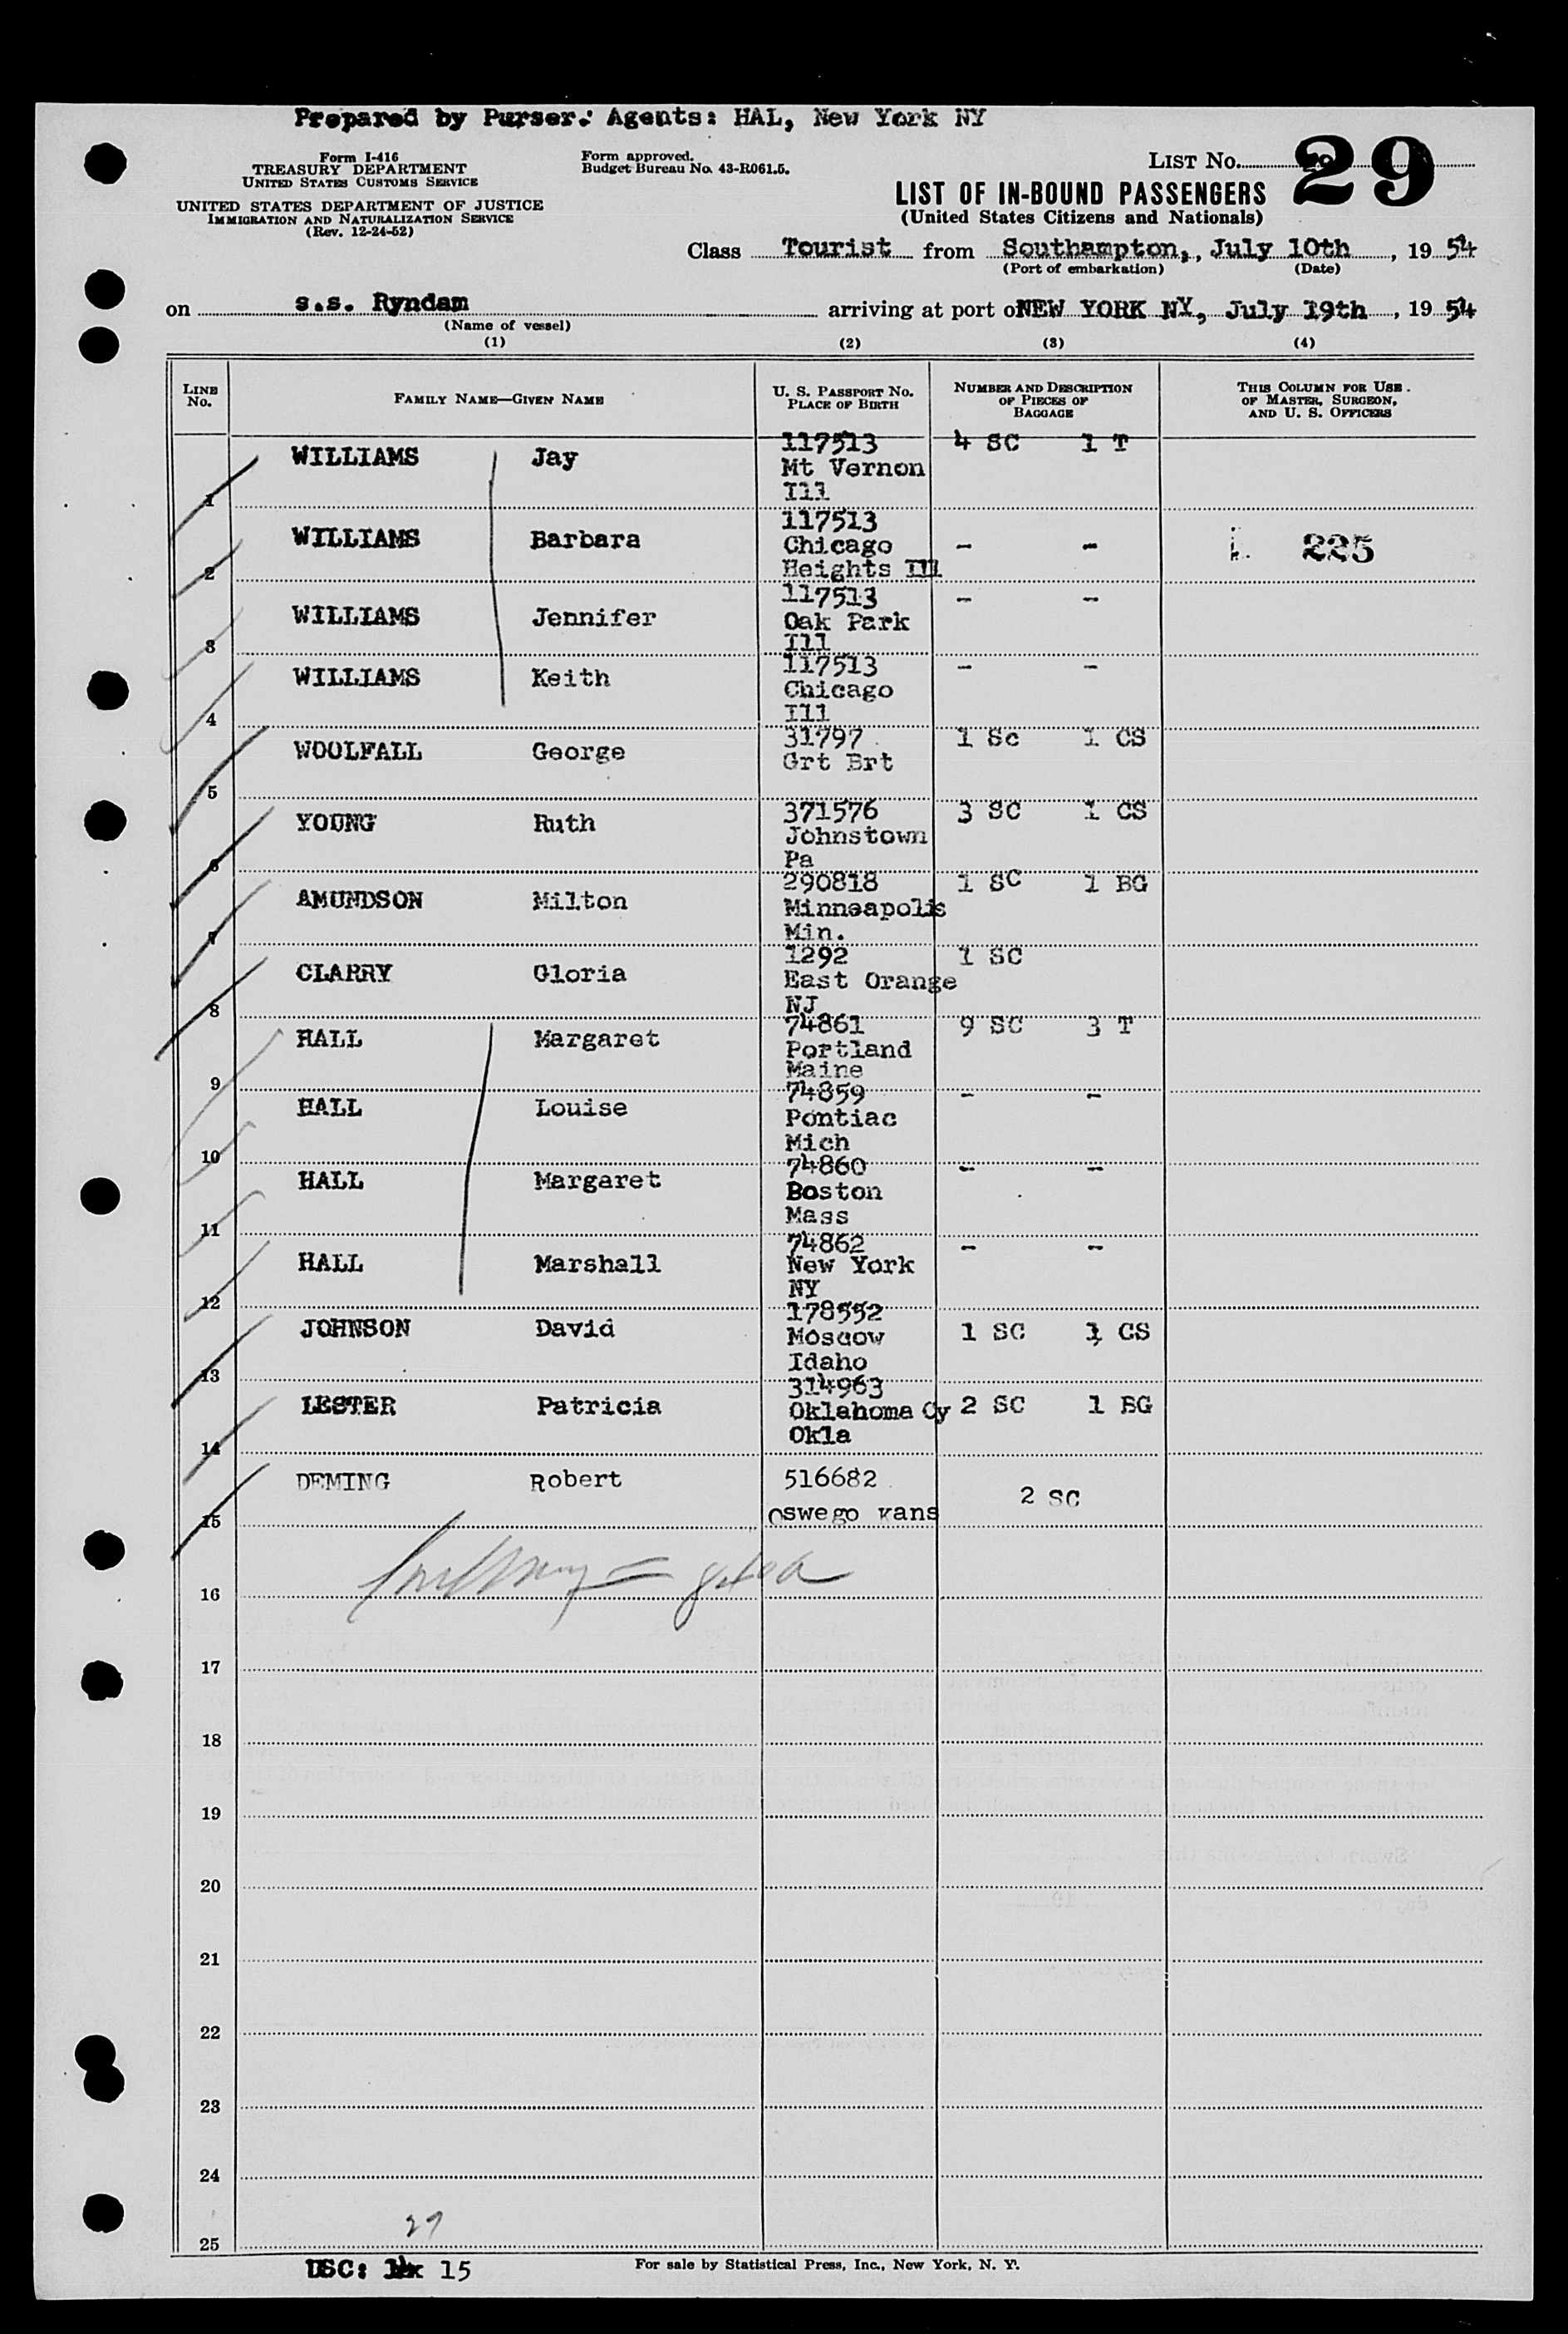 Prepared by Purser. Agents: HAL, New York NY
Form I-416
TREASURY DEPARTMENT
UNITED STATES CUSTOMS SERVICE
UNITED STATES DEPARTMENT OF JUSTICE
IMMIGRATION AND NATURALIZATION SERVICE
(Rev. 12-24-52)
Form approved.
Budget Bureau No. 43-R061.5.
LIST No. 29
LIST OF IN-BOUND PASSENGERS
(United States Citizens and Nationals)
Class Tourist from Southampton, July 10th, 19 54
(Port of embarkation) (Date)
on s.s. Ryndam arriving at port o NEW YORK NY, July 19th, 19 54
(Name of vessel)
(1) (2) (3) (4)
LINE No. FAMILY NAME—GIVEN NAME U. S. PASSPORT NO. PLACE OF BIRTH NUMBER AND DESCRIPTION OF PIECES OF BAGGAGE THIS COLUMN FOR USE OF MASTER, SURGEON, AND U. S. OFFICERS
1 WILLIAMS Jay 117513 Mt Vernon Ill 4 SC 1 T
2 WILLIAMS Barbara 117513 Chicago Heights Ill - - 225
3 WILLIAMS Jennifer 117513 Oak Park Ill - -
4 WILLIAMS Keith 117513 Chicago Ill - -
5 WOOLFALL George 31797 Grt Brt 1 Sc 1 CS
6 YOUNG Ruth 371576 Johnstown Pa 3 SC 1 CS
7 AMUNDSON Milton 290818 Minneapolis Min. 1 SC 1 BG
8 CLARRY Gloria 1292 East Orange NJ 1 SC
9 HALL Margaret 74861 Portland Maine 9 SC 3 T
10 HALL Louise 74859 Pontiac Mich - -
11 HALL Margaret 74860 Boston Mass - -
12 HALL Marshall 74862 New York NY - -
13 JOHNSON David 178552 Moscow Idaho 1 SC 1 CS
14 LESTER Patricia 314963 Oklahoma Cy Okla 2 SC 1 BG
15 DEMING Robert 516682 Oswego Kans 2 SC
16
17
18
19
20
21
22
23
24
25
USC: 15
For sale by Statistical Press, Inc., New York, N. Y.